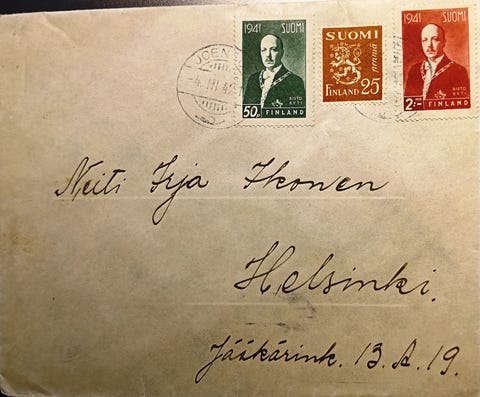 1941 SUOMI
RISTO
RYTI
50 P. FINLAND
SUOMI
25
penniä
FINLAND
1941 SUOMI
RISTO
RYTI
2:- FINLAND
JOEN
4. III 4
Neiti Irja Ikonen
Helsinki.
Jääkärink. 13. A. 19.